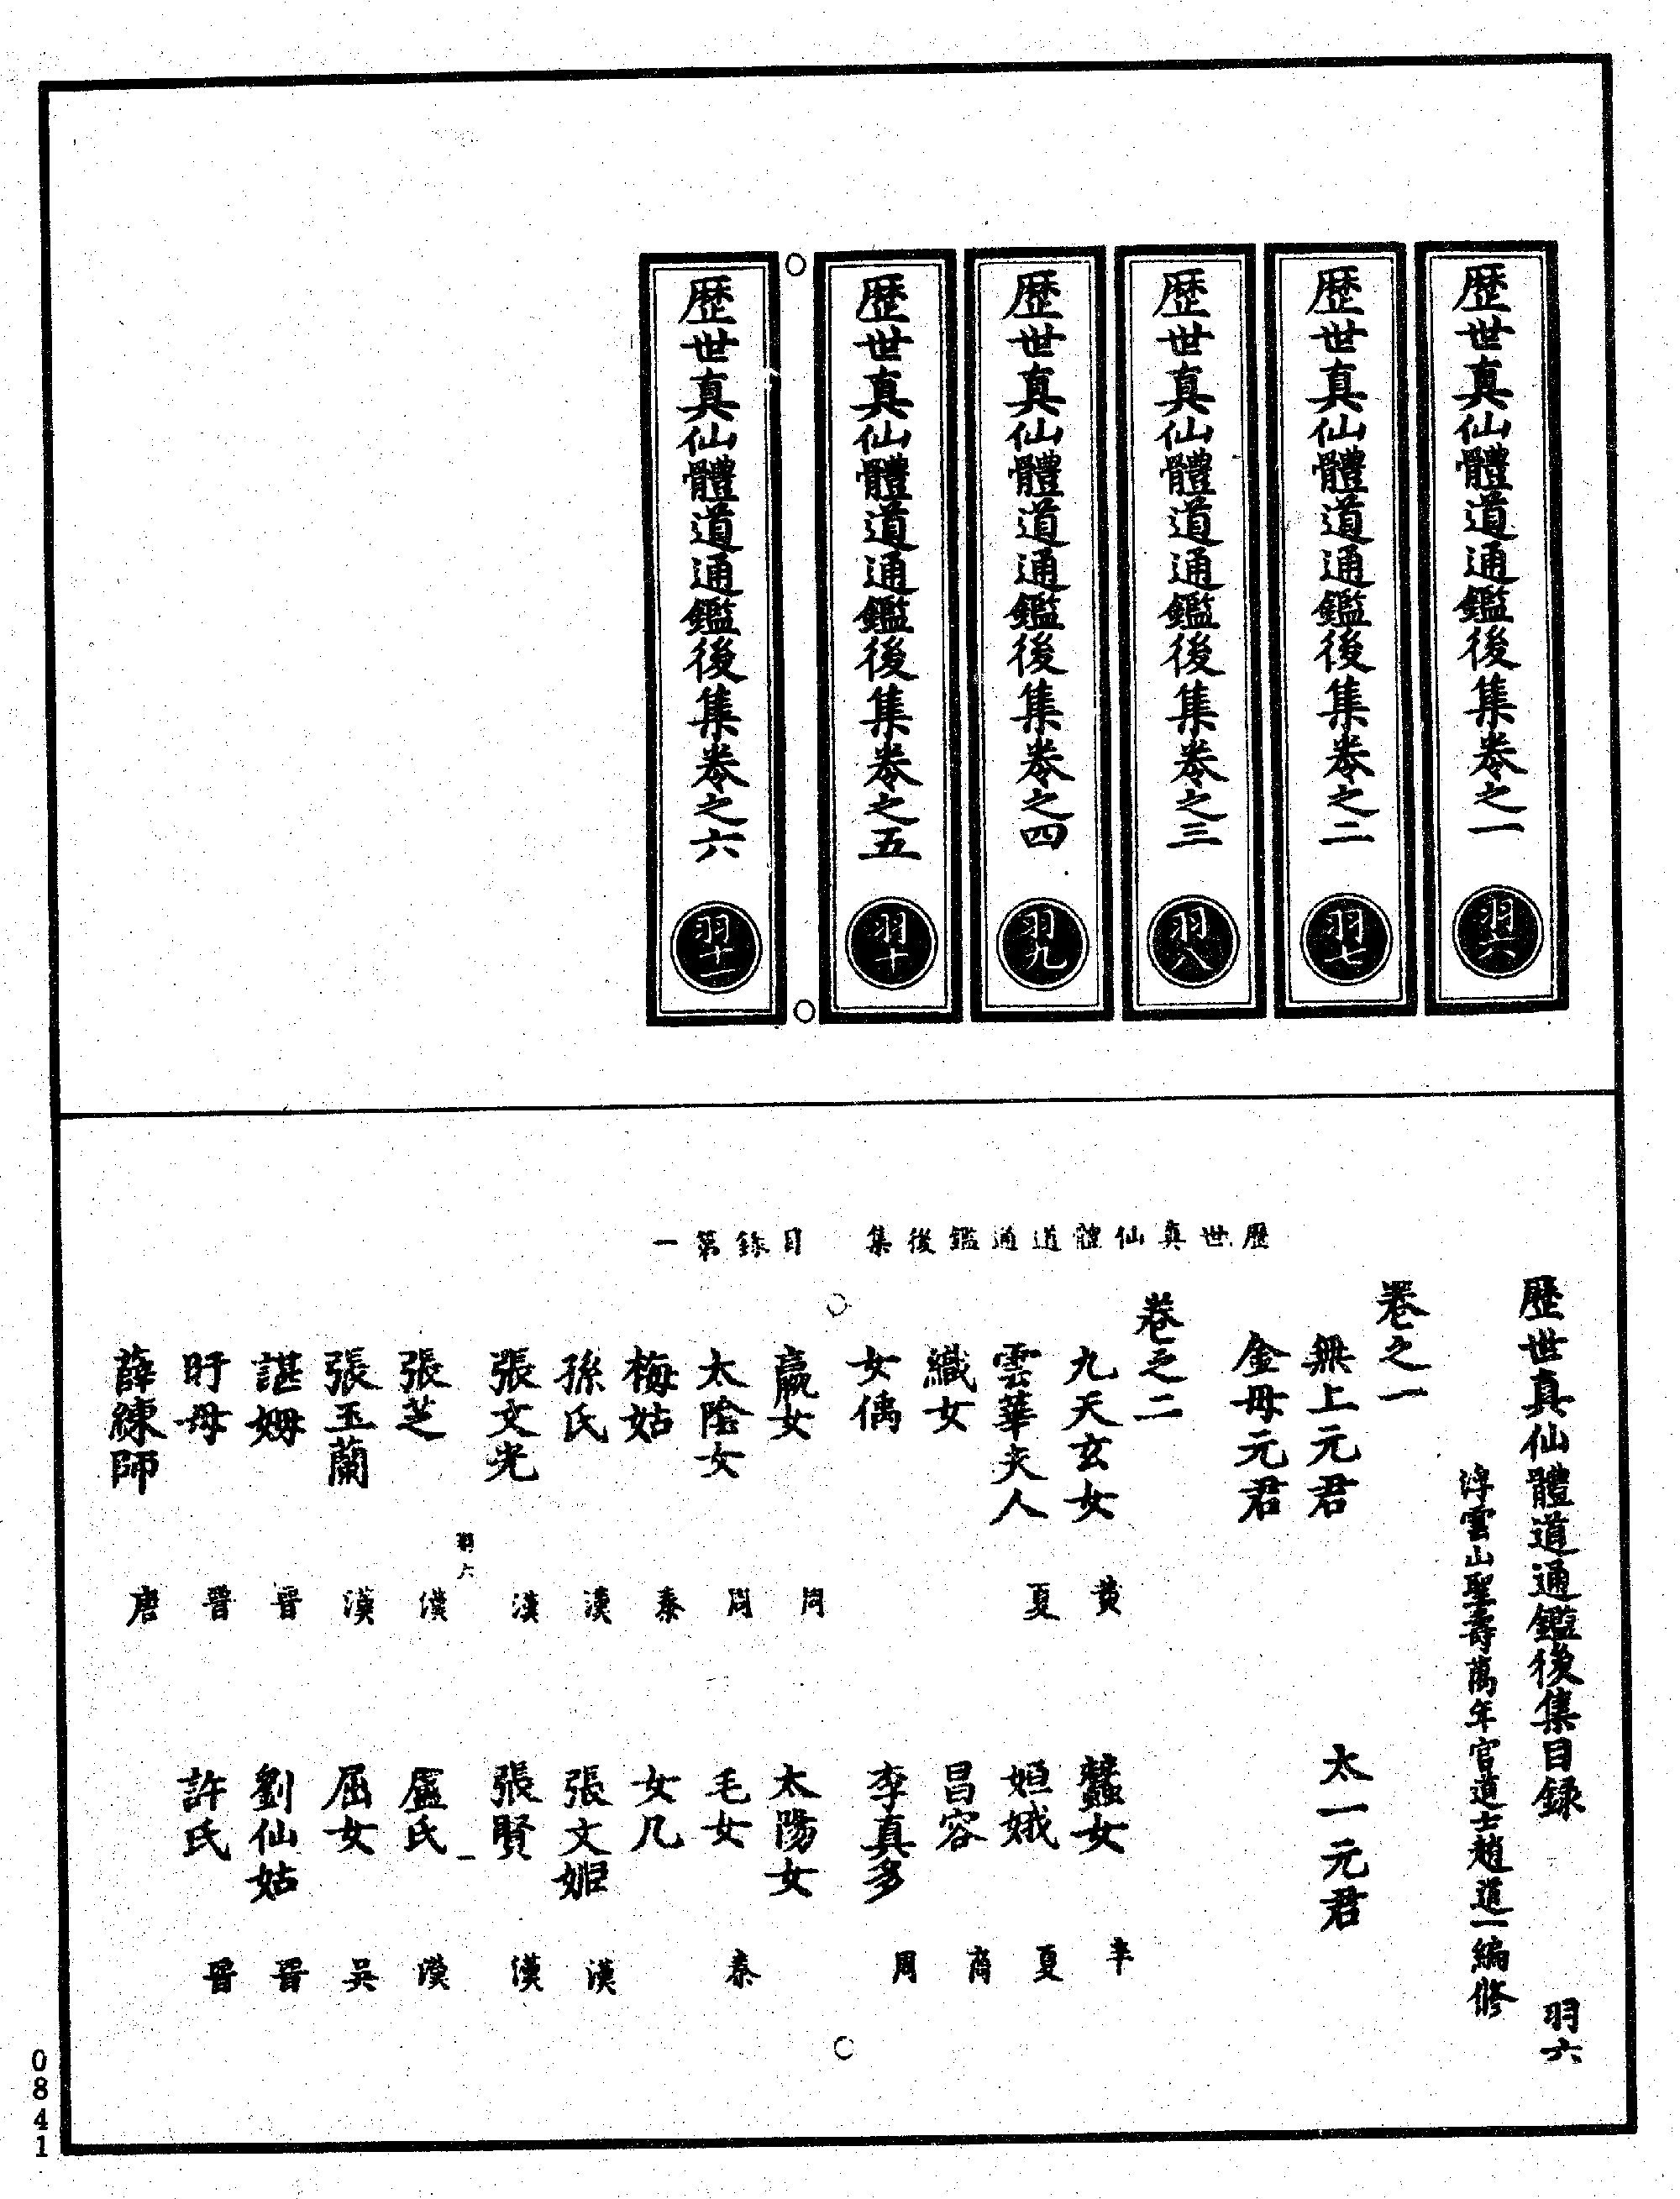 歷世真仙體道通鑑後集卷之一 羽六
歷世真仙體道通鑑後集卷之二 羽七
歷世真仙體道通鑑後集卷之三 羽八
歷世真仙體道通鑑後集卷之四 羽九
歷世真仙體道通鑑後集卷之五 羽十
歷世真仙體道通鑑後集卷之六 羽十一
歷世真仙體道通鑑後集 目錄第一
歷世真仙體道通鑑後集目録 羽六
浮雲山聖壽萬年官道士趙道一編修
卷之一
無上元君 太一元君
金母元君
卷之二
九天玄女 黄 蠶女 辛
雲華夫人 夏 姮娥 夏
織女 昌容 商
女偊 李真多 周
嬴女 周 太陽女
太陰女 周 毛女 秦
梅姑 秦 女几
孫氏 漢 張文姬 漢
張文光 漢 張賢 漢
羽六 一
張芝 漢 盧氏 漢
張玉蘭 漢 屈女 吳
諶姆 晋 劉仙姑 晋
盱母 晋 許氏 晋
薛練師 唐
0841